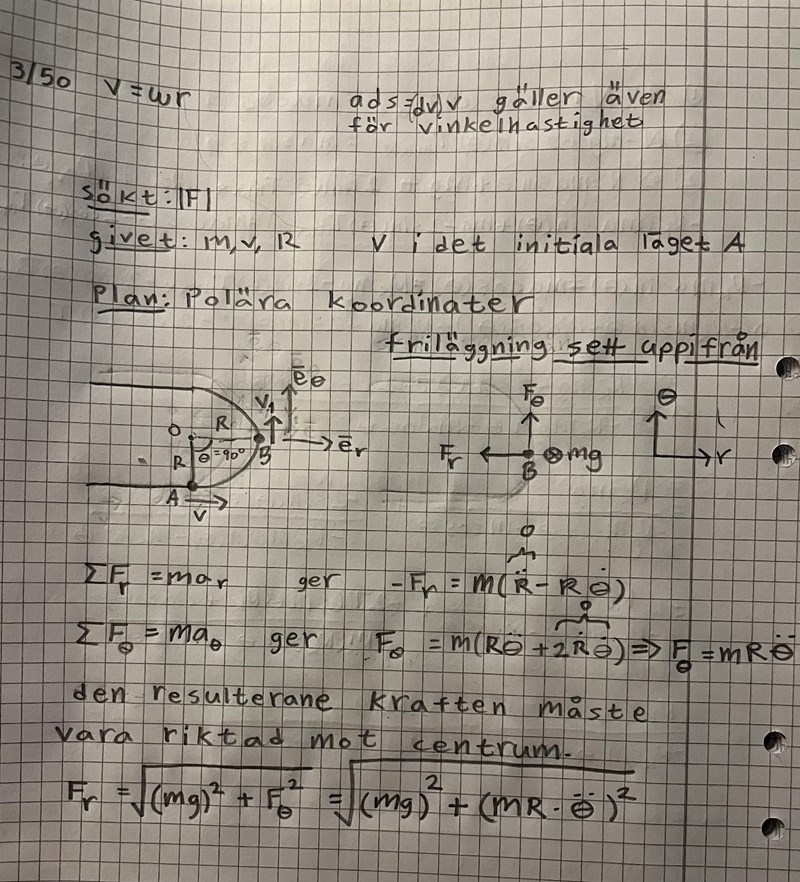 3/50 V=ωr
ads=(dv)v gäller även
för vinkelhastighet
sökt: |F|
givet: m, v, R V i det initiala läget A
Plan: Polära koordinater
friläggning sett uppifrån
ēθ
V₁
O R
B
ēr
R θ=90°
A
V
Fθ
θ
Fr B ⊗mg
r
0
ΣFr = mar ger -Fr = m(R̈ - Rθ̇)
0
ΣFθ = maθ ger Fθ = m(Rθ̈ + 2Ṙθ̇) ⇒ Fθ = mRθ̈
den resulterane kraften måste
vara riktad mot centrum.
Fr = √((mg)² + Fθ²) = √((mg)² + (mR·θ̈)²)